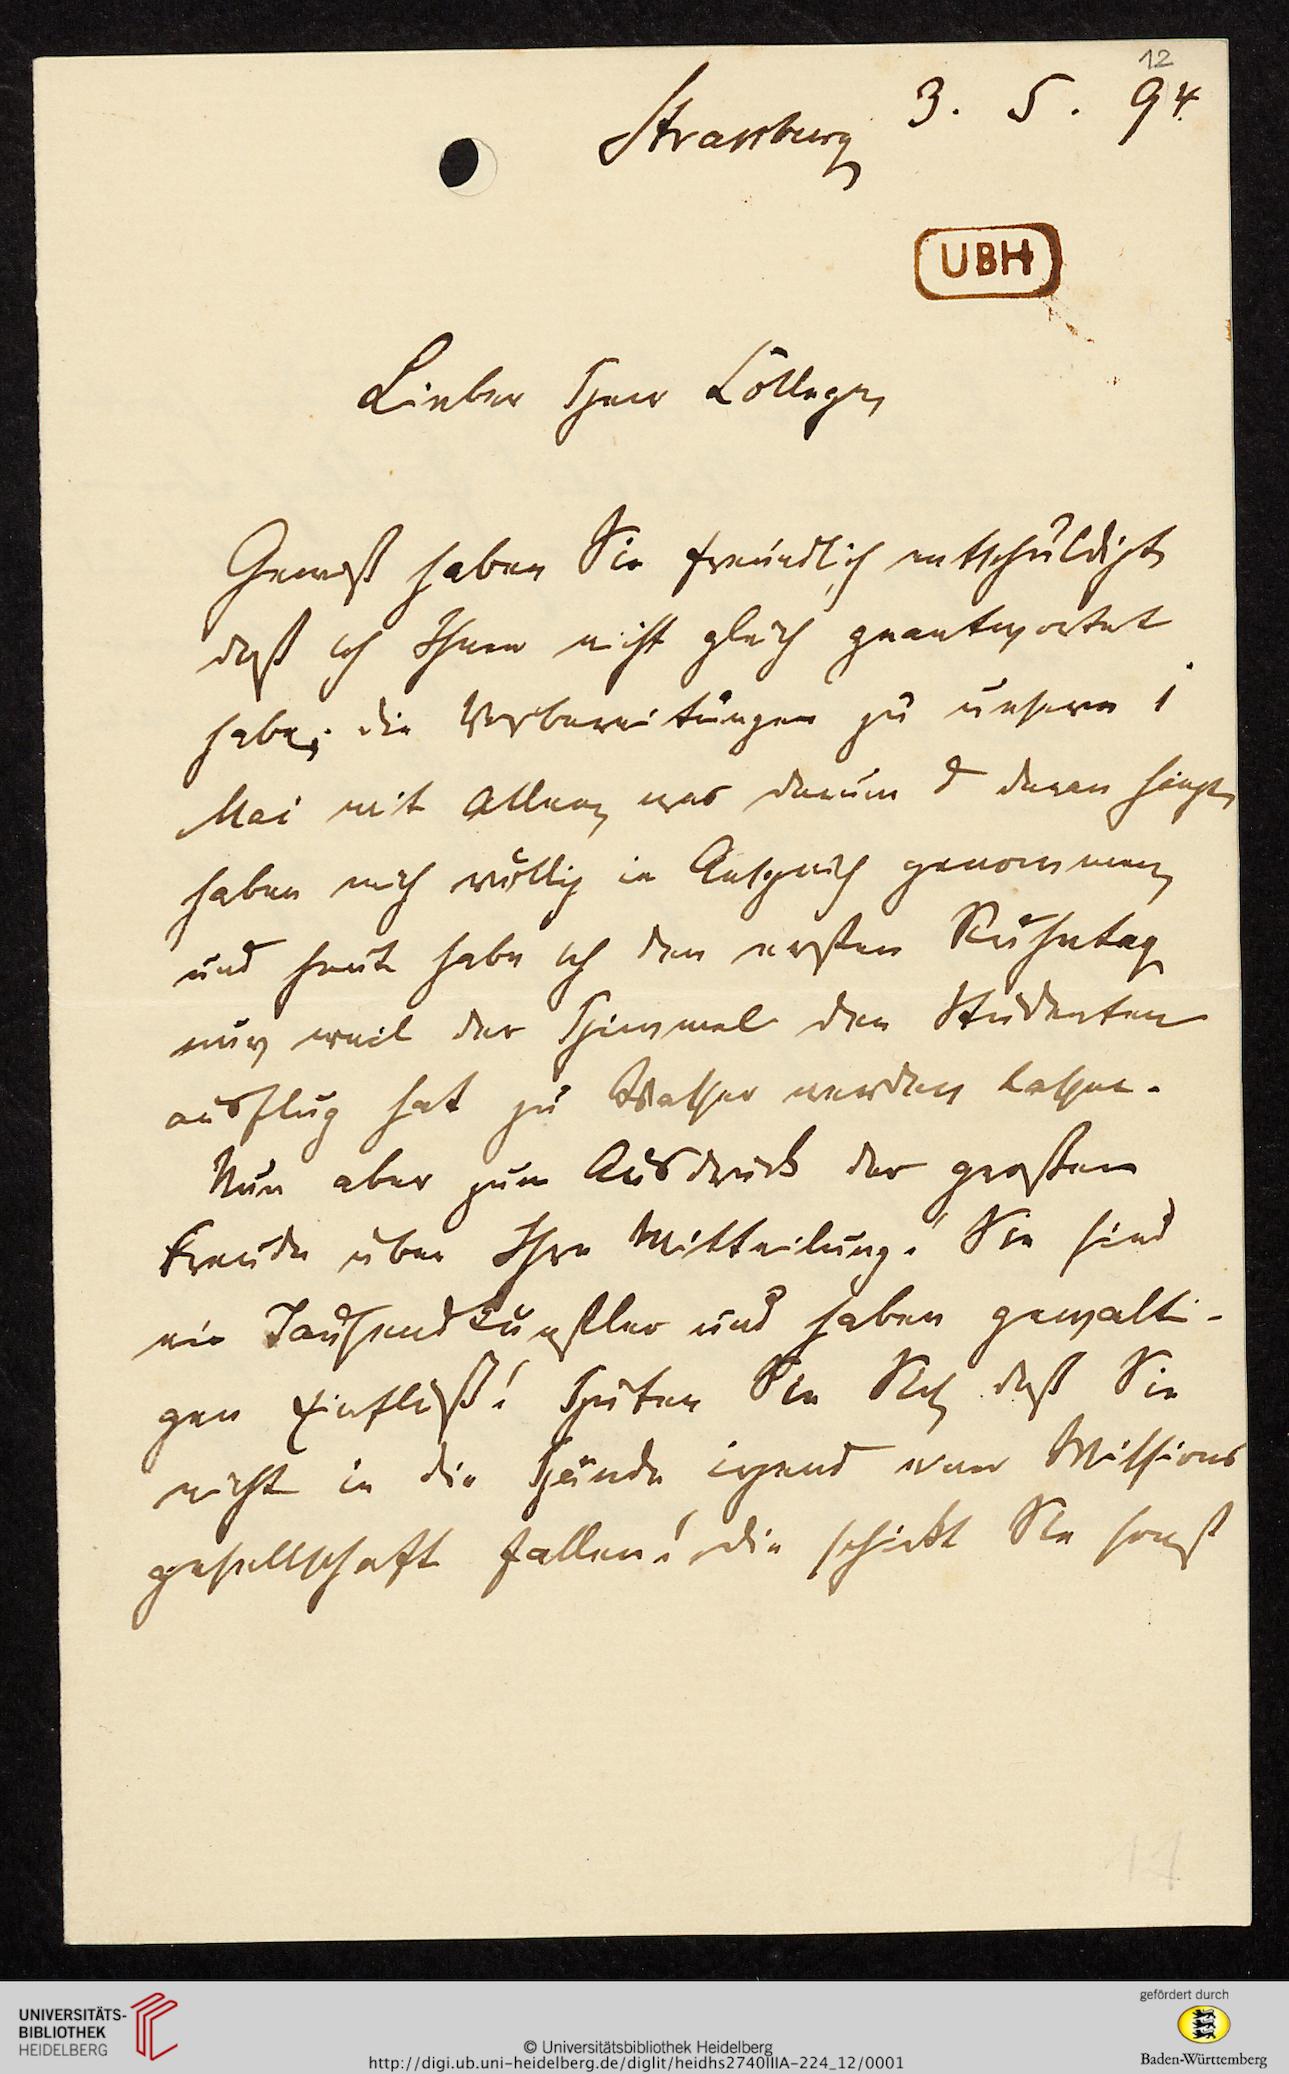 12
Strassburg 3. 5. 94.
UBH
Lieber Herr College,
Gewiß haben Sie freundlich entschuldigt,
daß ich Ihnen nicht gleich geantwortet
habe; die Vorbereitungen zu unserm 1
Mai mit Allem, was darum & daran hängt,
haben mich völlig in Anspruch genommen,
und heute habe ich den ersten Ruhetag
nur weil der Himmel den Studenten
ausflug hat zu Wasser werden lassen.
Nun aber zum Ausdruck der großen
Freude über Ihre Mitteilung! Sie sind
ein Tausendkünstler und haben gewalti-
gen Einfluß! Hüten Sie Sich, daß Sie
nicht in die Hände irgend einer Missions
gesellschaft fallen! die schickt Sie sonst
UNIVERSITÄTS-
BIBLIOTHEK
HEIDELBERG
© Universitätsbibliothek Heidelberg
http://digi.ub.uni-heidelberg.de/diglit/heidhs2740IIIA-224_12/0001
gefördert durch
Baden-Württemberg